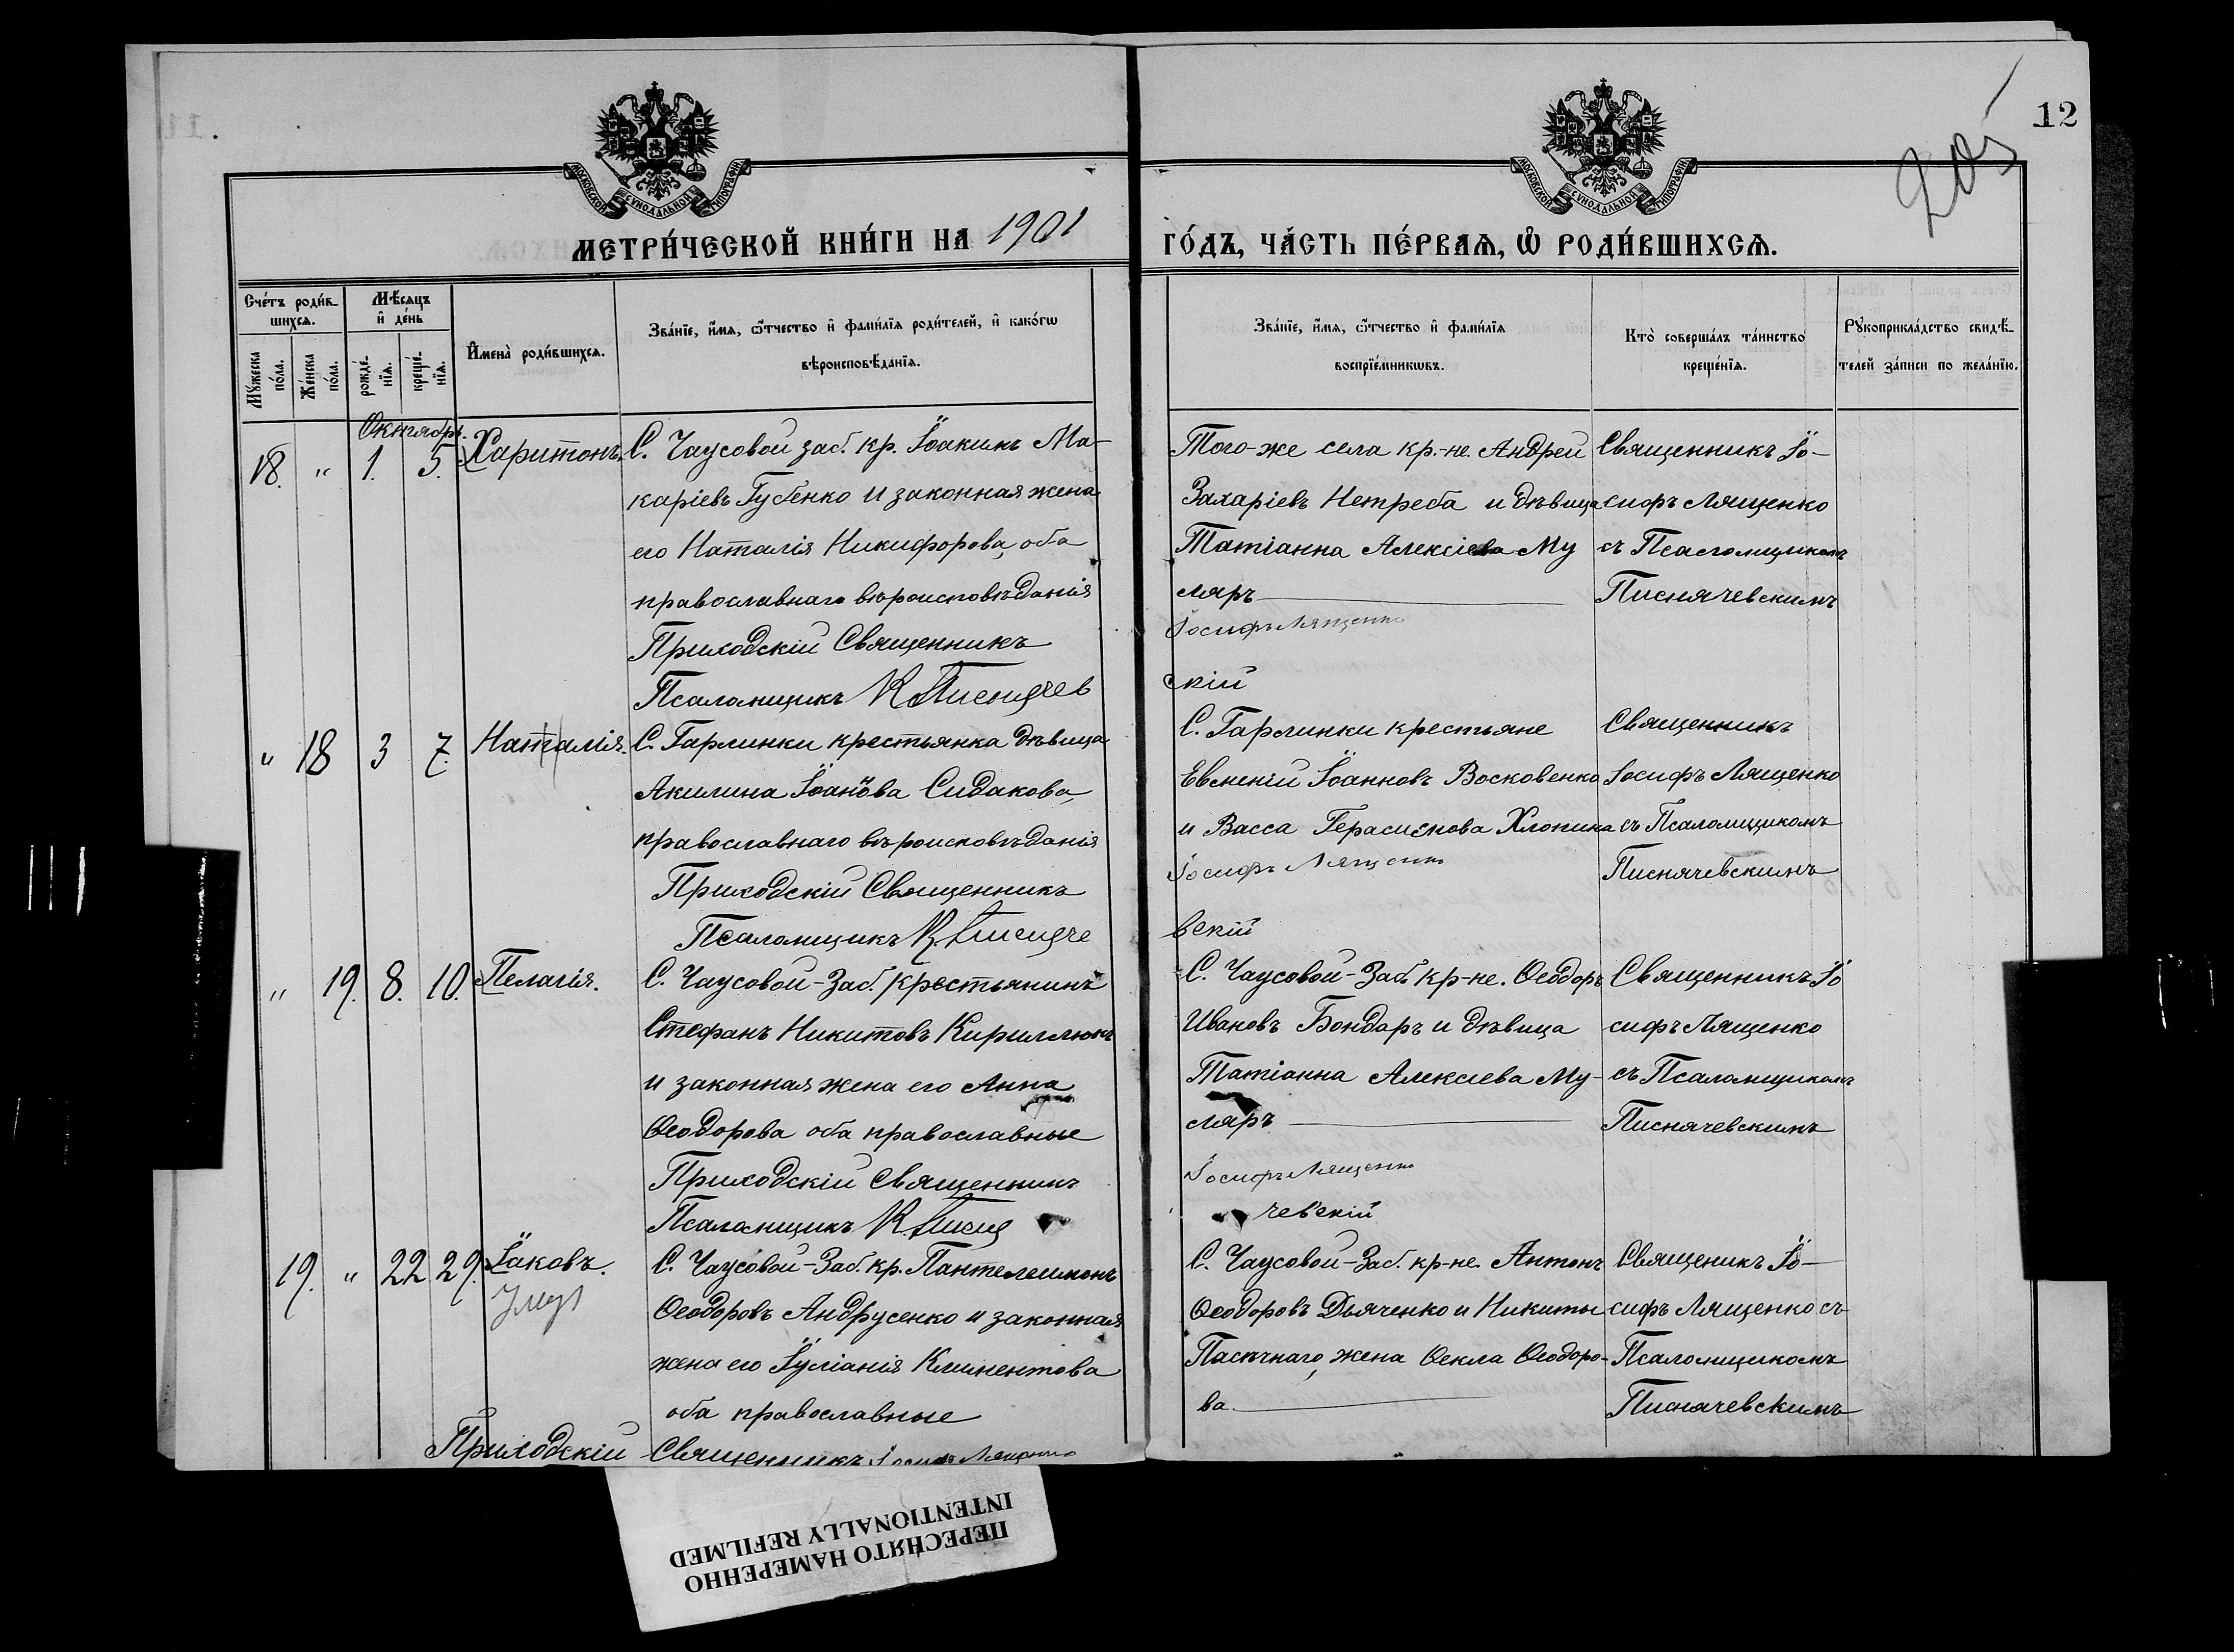 12
МОСКОВСКОЙ СѴНОДАЛЬНОЙ ТИПОГРАФІИ
МОСКОВСКОЙ СѴНОДАЛЬНОЙ ТИПОГРАФІИ
МЕТРИ́ЧЕСКОЙ КНИ́ГИ НА 1901
ГО́ДЪ, ЧА́СТЬ ПЕ́РВАѦ, Ѡ҆ РОДИ́ВШИХСѦ.
Сче́тъ роди́в-
шихсѧ.
Мꙋ́жеска
по́ла.
Же́нска
по́ла.
Мѣ́сѧцъ
и҆ де́нь
рожде́-
нїѧ.
креще́-
нїѧ.
И҆мена̀ роди́вшихсѧ.
Зва́нїе, и҆́мѧ, ѻ҆́тчество и҆ фами́лїѧ роди́телей, и҆ како́гѡ
вѣроисповѣ́данїѧ.
Зва́нїе, и҆́мѧ, ѻ҆́тчество и҆ фами́лїѧ
воспрїе́мникѡвъ.
Кто̀ соверша́лъ та́инство
креще́нїѧ.
Рꙋкоприкла́дство свидѣ́-
телей за́писи по жела́нїю.
Октябрь.
18. " 1. 5. Харитонъ.
С. Чаусовой заб. кр. Іоакимъ Ма-
каріевъ Губенко и законная жена
его Наталія Никифорова, оба
православнаго вѣроисповѣданія
Приходскій Священникъ
Псаломщикъ К. Писнячев
Того-же села кр-не. Андрей
Захаріевъ Нетреба и дѣвица
Татіанна Алексіева Му
ляръ
Іосифъ Лященко
скій
Священникъ Іо-
сифъ Лященко
съ Псаломщикомъ
Писнячевскимъ
" 18 3 7. Наталія.
С. Гарлинки крестьянка дѣвица
Акилина Іоаннова Сидакова,
православнаго вѣроисповѣданія
Приходскій Священникъ
Псаломщикъ К. Писняче
С. Гарлинки крестьяне
Евменій Іоанновъ Восковенко
и Васса Герасимова Хлопика
Іосифъ Лященко
вскій
Священникъ
Іосифъ Лященко
съ Псаломщикомъ
Писнячевскимъ
" 19. 8. 10. Пелагія.
С. Чаусовой-Заб. Крестьянинъ
Стефанъ Никитовъ Кириллюкъ
и законная жена его Анна
Ѳеодорова оба православные
Приходскій Священникъ
Псаломщикъ К. Писня
С. Чаусовой-Заб. кр-не. Ѳеодоръ
Ивановъ Бондаръ и дѣвица
Татіанна Алексіева Му-
ляръ
Іосифъ Лященко
чевскій
Священникъ Іо
сифъ Лященко
съ Псаломщикомъ
Писнячевскимъ
19. " 22 29. Іаковъ.
С. Чаусовой-Заб. кр. Пантелеимонъ
Ѳеодоровъ Андрусенко и законная
жена его Іуліанія Климентова
оба православные
Приходскій Священникъ Іосифъ Лященко
С. Чаусовой-Заб. кр-не. Антонъ
Ѳеодоровъ Дьяченко и Никиты
Пасѣчнаго, жена Ѳекла Ѳеодоро-
ва.
Священикъ Іо-
сифъ Лященко съ
Псаломщикомъ
Писнячевскимъ
ПЕРЕСНЯТО НАМЕРЕННО
INTENTIONALLY REFILMED